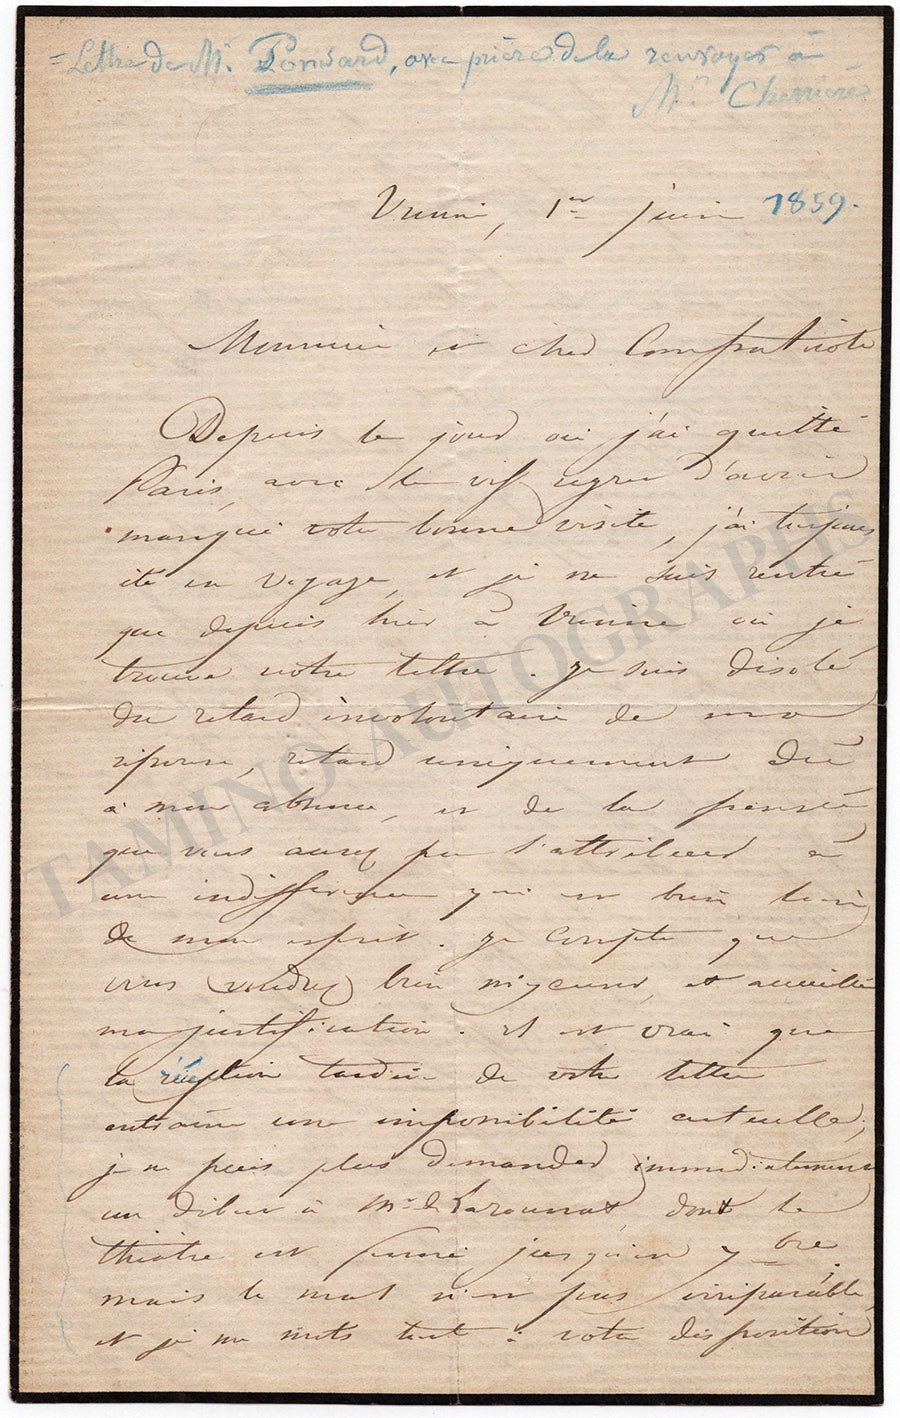 = Lettre de Mr. Ponsard, avec prière de la renvoyer à
Mr. Cherrière
Vienne, 1er juin 1859.
Monsieur et cher Compatriote
Depuis le jour où j'ai quitté
Paris, avec le vif regret d'avoir
manqué votre bonne visite, j'ai toujours
été en voyage, et je ne suis rentré
que depuis hier à Vienne où je
trouve votre lettre. Je suis désolé
du retard involontaire de ma
réponse, retard uniquement dû
à mon absence, et de la pensée
que vous aurez pu l'attribuer à
une indifférence qui est bien loin
de mon esprit. Je compte que
vous voudrez bien m'excuser, et accueillir
ma justification. Il est vrai que
la réception tardive de votre lettre
entraîne une impossibilité actuelle;
je ne puis plus demander immédiatement
un début à Mr. de Larounat, dont le
théâtre est fermé jusqu'en 7bre.
mais le mal n'est pas irréparable,
et je me mets tout à votre disposition
TAMINO AUTOGRAPHS